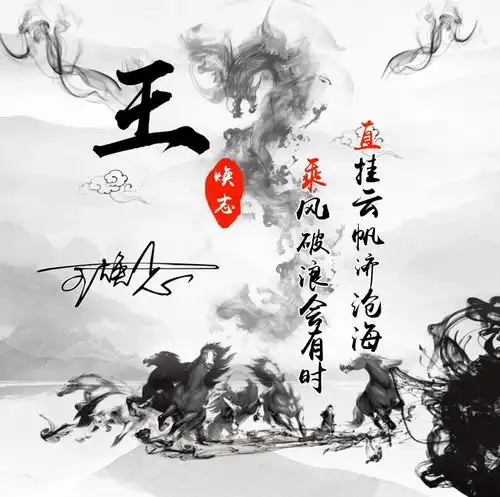 王
焕志
乘风破浪会有时
直挂云帆济沧海